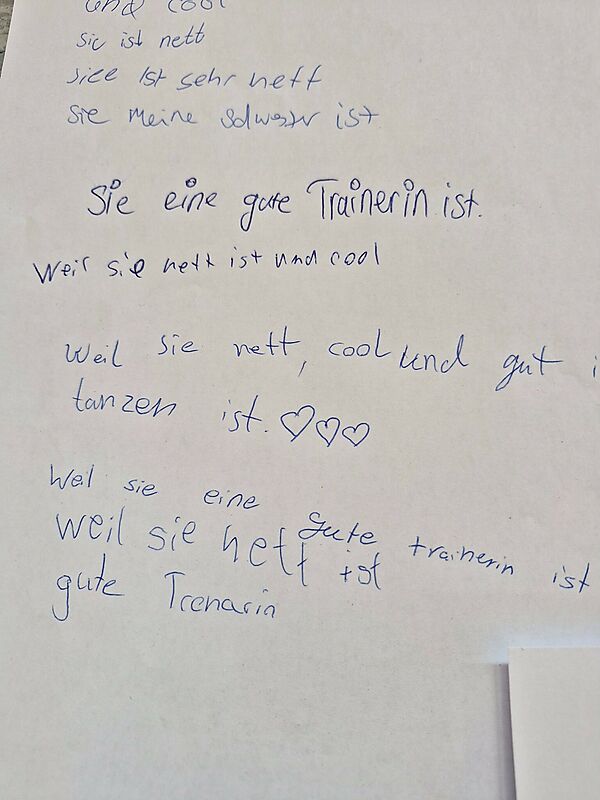 und cool
sie ist nett
siee ist sehr nett
sie meine Schwester ist.
Sie eine gute Trainerin ist.
Weil sie nett ist und cool
Weil sie nett, cool und gut i
tanzen ist. ♡♡♡
Weil sie eine gute trainerin ist
weil sie nett ist
gute Trenarin